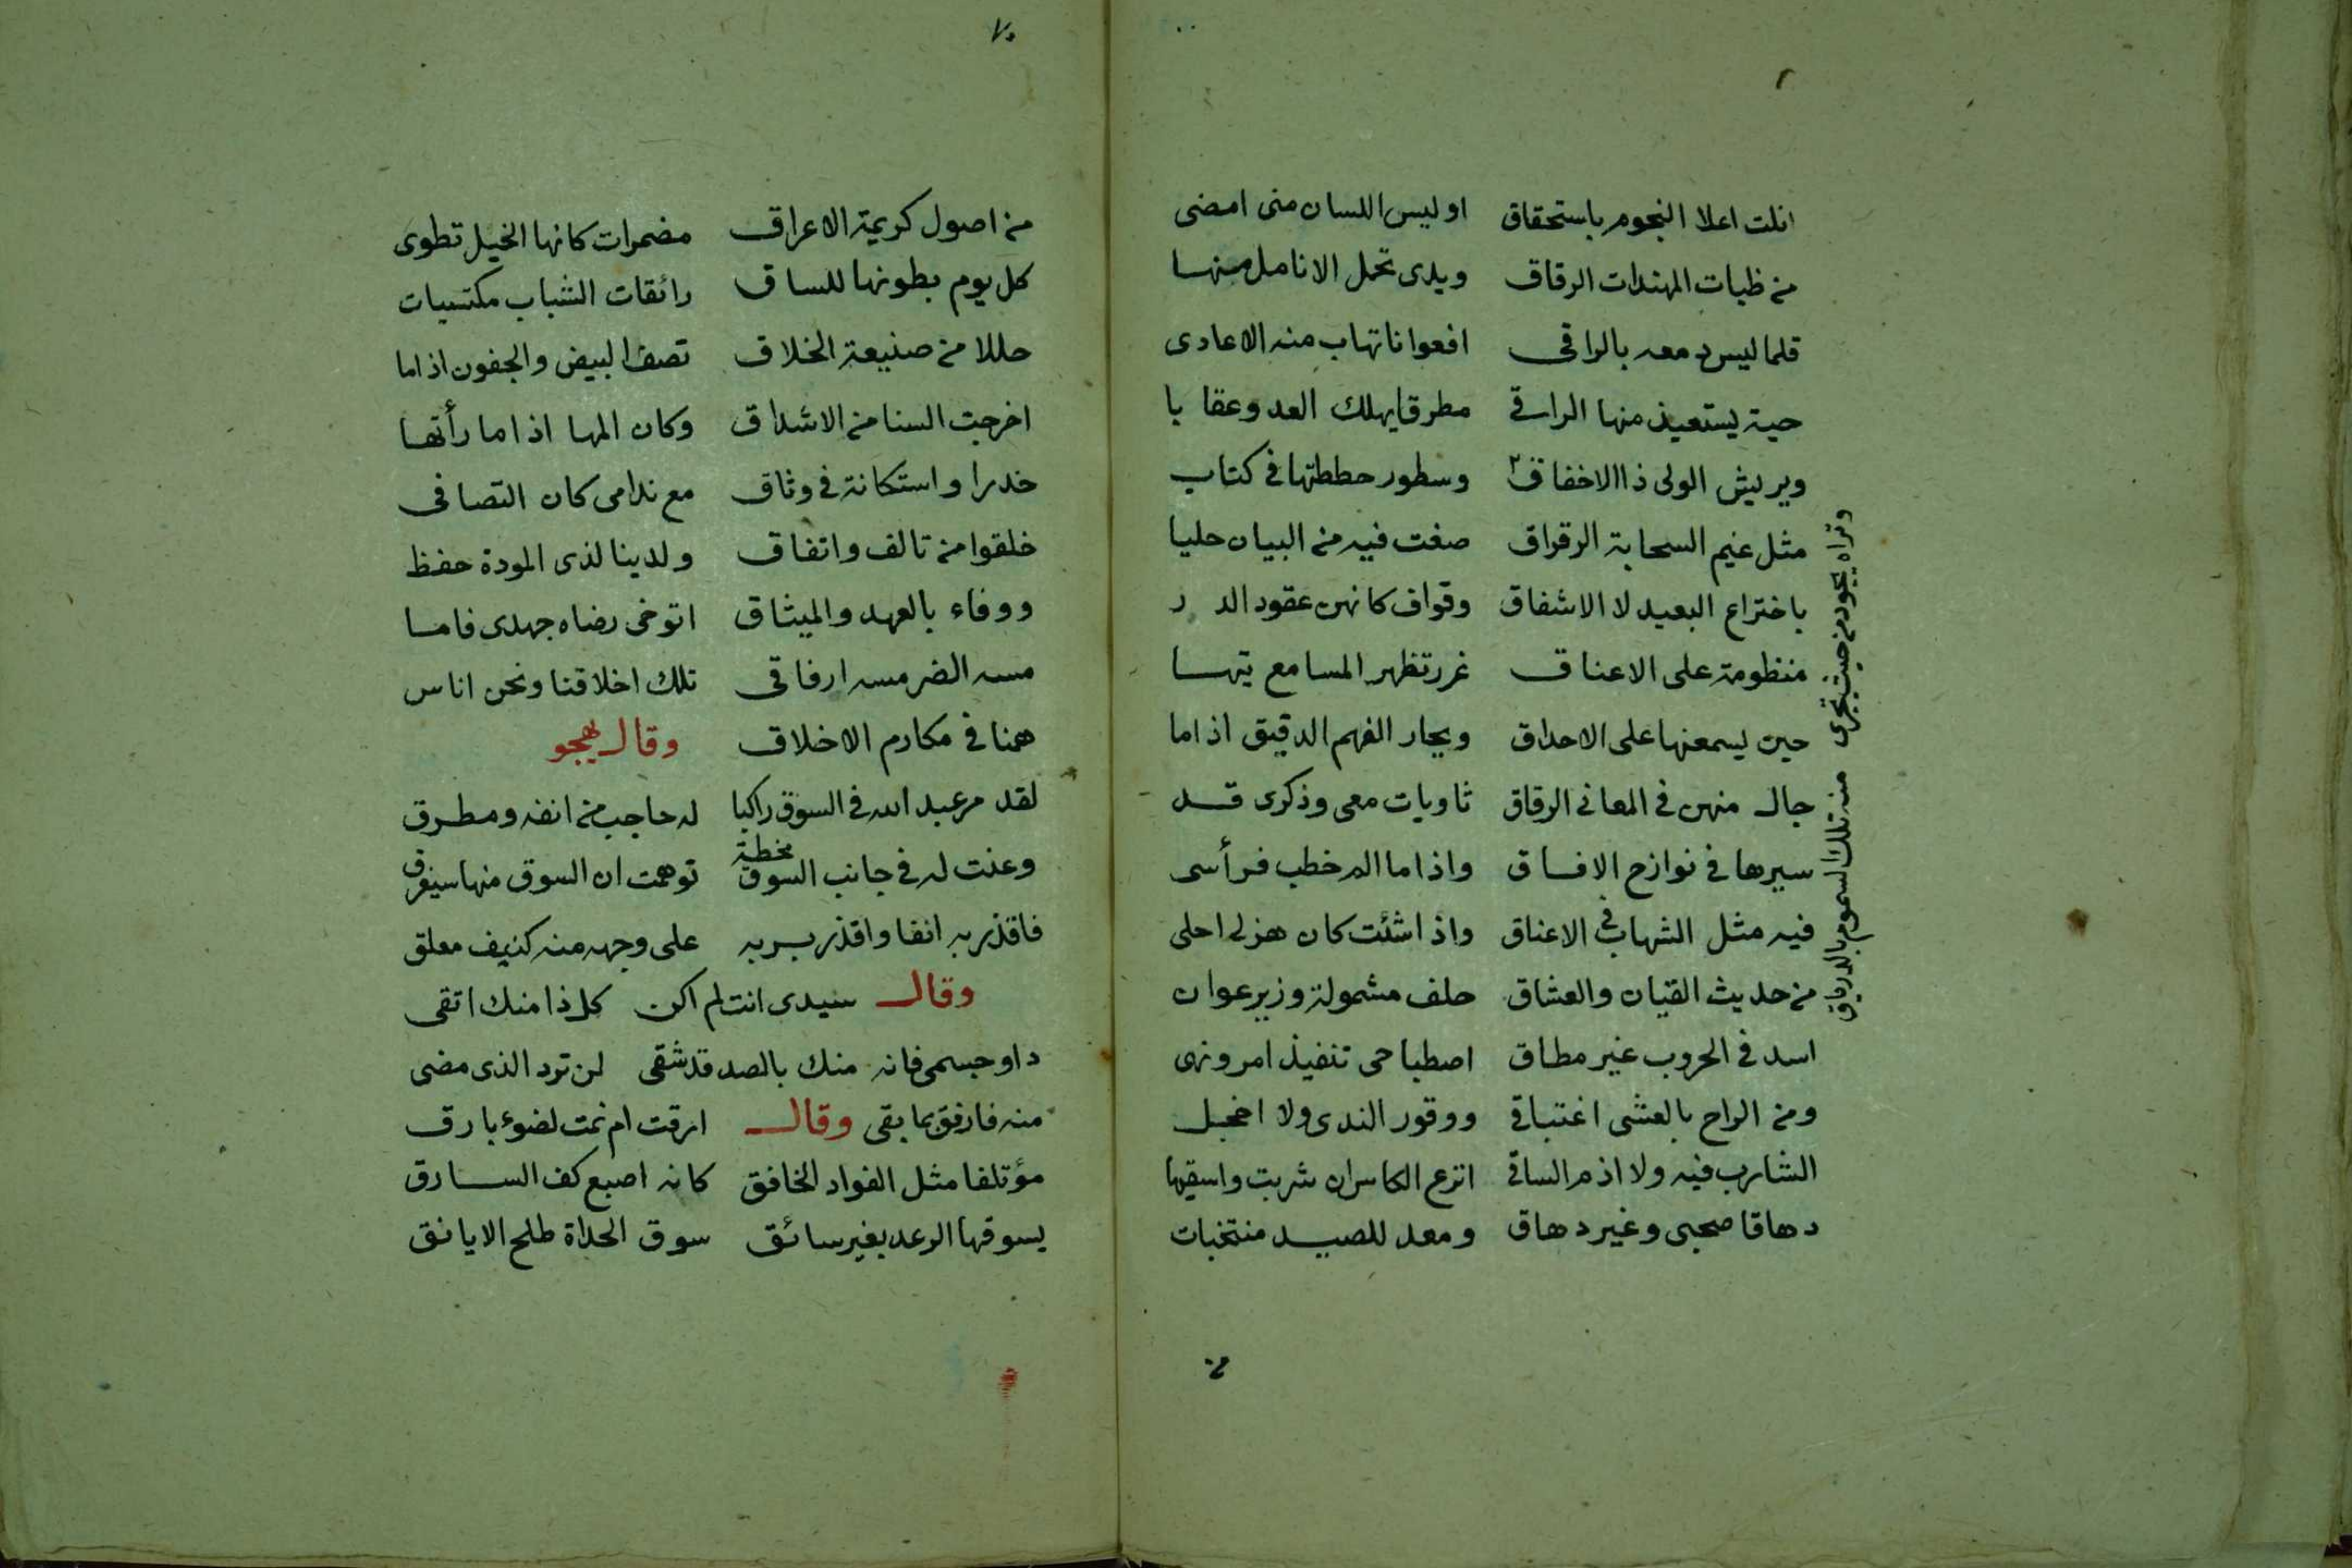 انلت اعلا النجوم باستحقاق اوليس اللسان منى امضى
من ظبات المهندات الرقاق ويدى تحمل الانامل منها
قلما ليس دمعه بالراقى افعوانا تهاب منه الاعادى
حية يستعيذ منها الراقى مطرقا يهلك العد وعقا با
ويريش الولى ذا الاخفاق وسطور حططتها فى كتاب
مثل غيم السحابة الرقراق صغت فيه من البيان حليا
باختراع البعيد لا الاشفاق وقواف كانهن عقود الد ر
منظومة على الاعناق غرر تظهر المسامع تيها
حين يسمعنها على الاحداق ويحار الفهم الدقيق اذاما
جال منهن فى المعانى الرقاق ثاويات معى وذكرى قد
سيرها فى نوازح الافاق واذاما الم خطب فرأسى
فيه مثل الشهاب فى الاعناق واذا شئت كان هزلى احلى
من حديث القيان والعشاق حلف مشمولة وزير عوان
اسد فى الحروب غير مطاق اصطباحى تنفيذ امر ونهى
ومن الراح بالعشى اغتباقى ووقور الندى ولا اخجل
الشارب فيه ولا اذم الساقى انزع الكاس ان شربت واسقيها
دهاقا صحبى وغير دهاق ومعد للصيد منتخبات
من
وتراه يجود من حيث تجرى منه تلك السموم بالدرياق
٧٠
من اصول كريمة الاعراق مضمرات كانها الخيل تطوى
كل يوم بطونها للساق رائقات الشباب مكتسيات
حللا من صنيعة الخلاق تصف البيض والجفون اذاما
اخرجت السنا من الاشداق وكان المها اذاما رأتها
خدرا واستكانة فى وثاق مع ندامى كان التصافى
خلقوا من تالف واتفاق ولدينا لذى المودة حفظ
ووفاء بالعهد والميثاق اتوخى رضاه جهدى فاما
مسه الضر مسه ارفاقى تلك اخلاقنا ونحن اناس
همنا فى مكارم الاخلاق وقال يهجو
لقد مر عبد الله فى السوق راكبا له حاجب من انفه ومطرق
وعنت له فى جانب السوق مخطة توهمت ان السوق منها سيغرق
فاقذر به انفا واقذر بربه على وجهه منه كنيف معلق
وقال سيدى انت لم اكن كل ذا منك اتقى
داو جسمى فانه منك بالصد قد شقى لن ترد الذى مضى
منه فارفق بما بقى وقال ارقت ام نمت لضوء بارق
مؤتلفا مثل الفواد الخافق كانه اصبع كف السارق
يسوقها الرعد بغير سائق سوق الحداة طلح الايانق